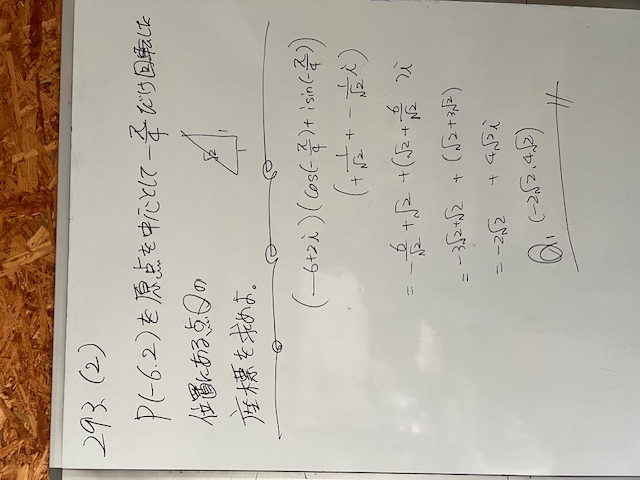 293. (2)
P(-6.2)を原点を中心として-π/4だけ回転した
位置にある点Qの
座標を求めよ。
√2 1 1
(-6+2i)(cos(-π/4)+isin(-π/4))
(+ 1/√2 + - 1/√2 i)
= -6/√2 + √2 + (√2 + 6/√2)i
= -3√2+√2 + (√2+3√2)
= -2√2 + 4√2i
Q, (-2√2, 4√2)